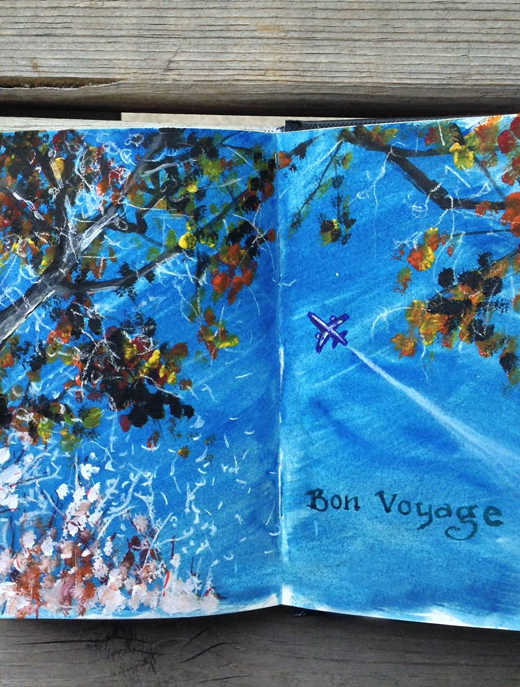 Bon Voyage